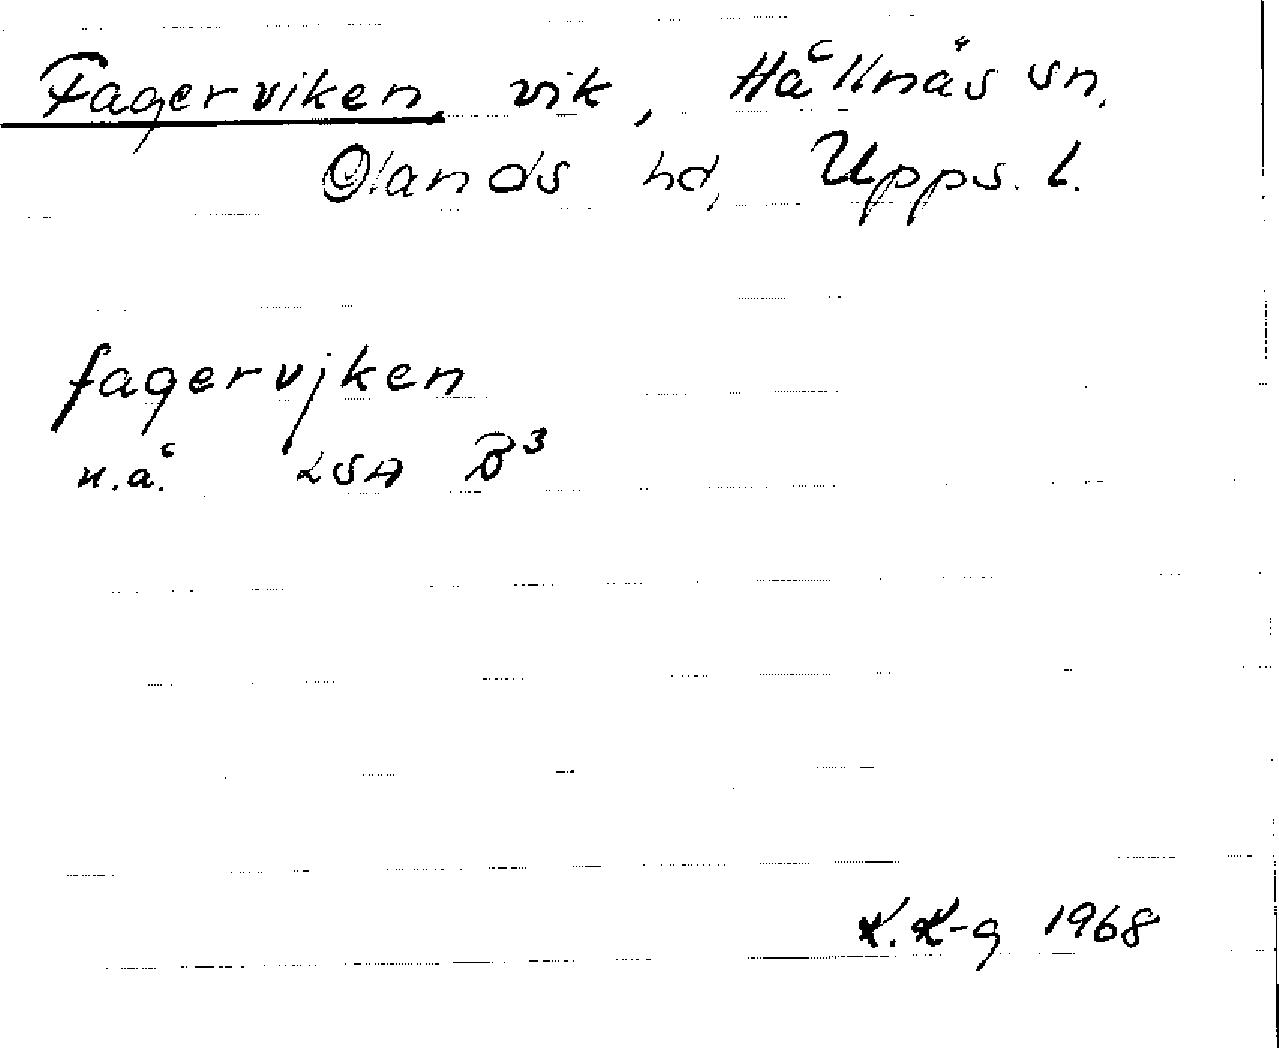 Fagerviken, vik, Hållnäs sn,
Olands hd, Upps. l.
fagervjken
u.å. LSA
K. K-g 1968